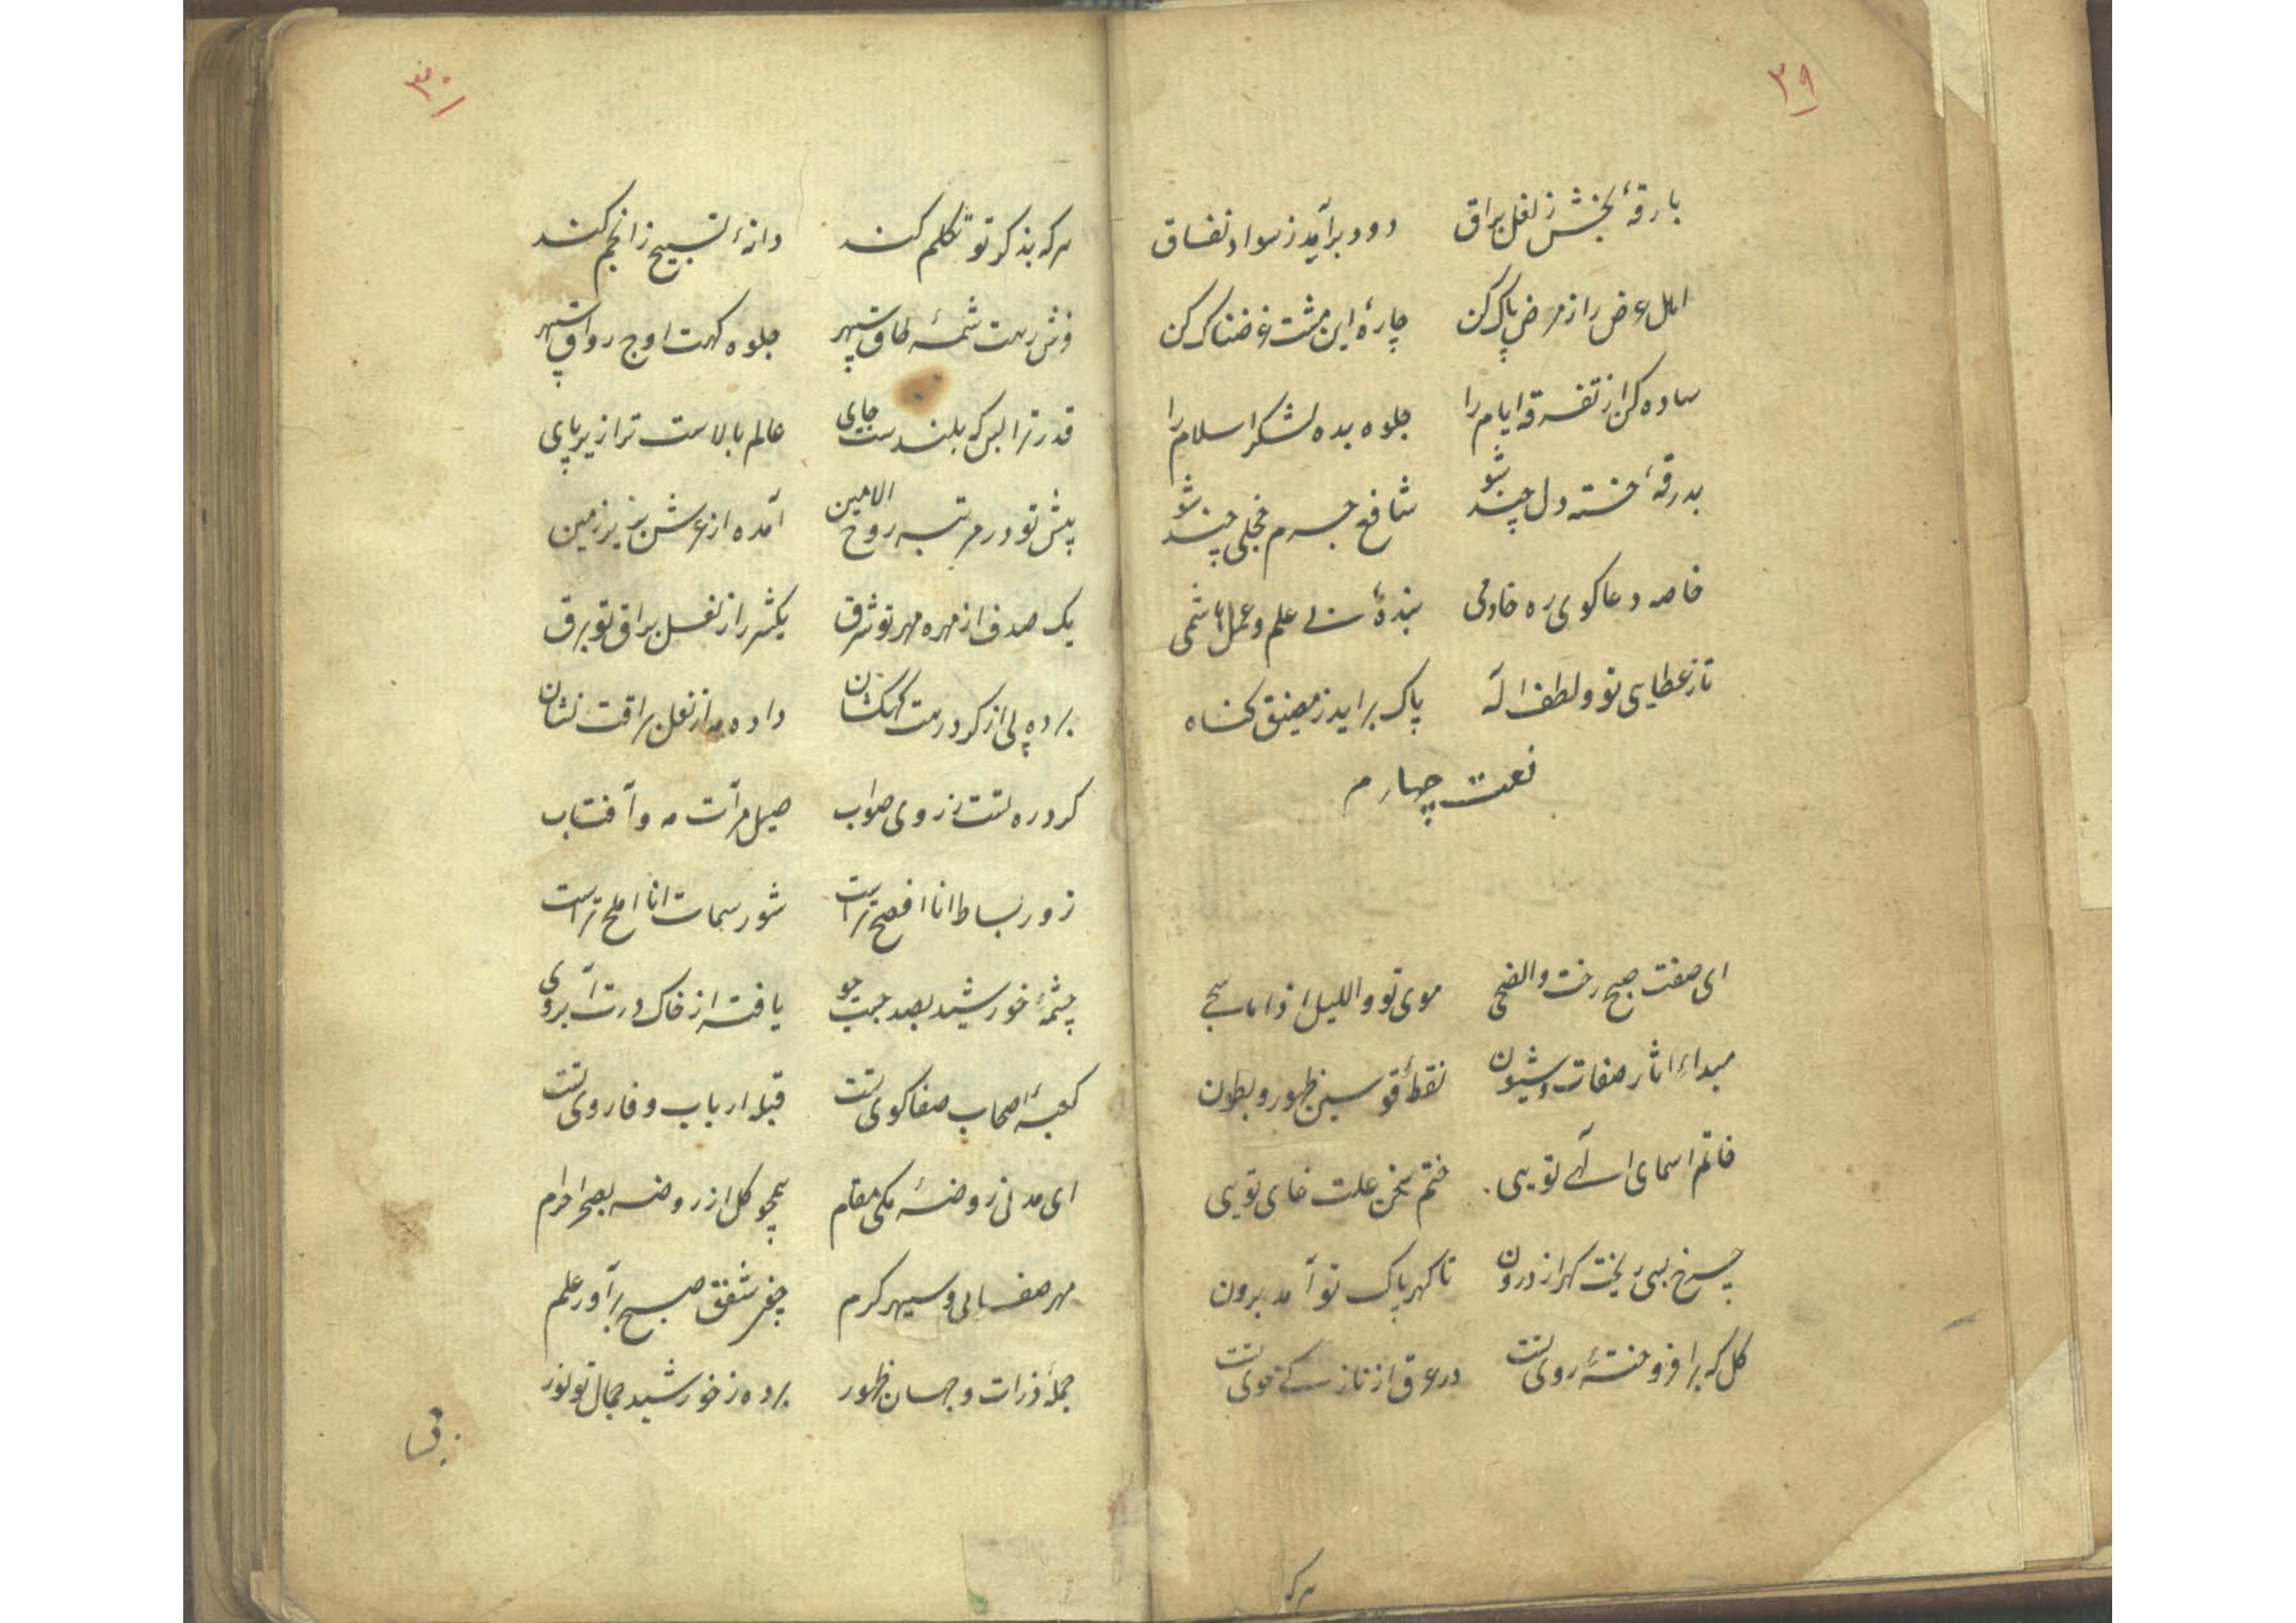 ۲۹
بارقهٔ بخش ز نعل براق دود برآمد ز سواد نفاق
اهل عرض را ز مرض پاک کن چارهٔ این مشت غرضناک کن
ساده کن از تفرقه ایام را جلوه بده لشکر اسلام را
بدرقهٔ خسته دل چند شو شافع جرم خجلی چند شو
خاصه دعاکوی ره خادمی بندهٔ بی علم و عمل هاشمی
تا ز عطایی تو و لطف اله پاک براید ز مضیق کناه
نعت چهارم
ای صفت صبح رخت والضحی موی تو واللیل اذا ما سجی
مبداء اثار صفات و شیون نقطهٔ قوسین ظهور و بطون
خاتم اسمای الهی تویی ختم سخن علت غای تویی
چرخ بسی ریخت کهر از درون تا کهر پاک تو آمد برون
کل که برافروختهٔ روی تست در عرق از نازکی خوی تست
هرکه
۳۰
هرکه بذکر تو تکلم کند دانهٔ تسبیح ز انجم کند
فرش رهت شمسهٔ طاق سپهر جلوه کهت اوج رواق سپهر
قدر ترا بس که بلندست جای عالم بالاست ترا زیر پای
پیش تو در مرتبه روح الامین آمده از عرش بزیر زمین
یک صدف از مهره مهر تو شرق یک شرر از نعل براق تو برق
برده پی از کرد رهت کهکشان داده مه از نعل براقت نشان
کرد ره تست ز روی صواب صیقل مرآت مه و آفتاب
زور بساط انا افصح تراست شور سماط انا املح تراست
چشمهٔ خورشید بصد جست جو یافته از خاک درت آبروی
کعبهٔ اصحاب صفا کوی تست قبله ارباب وفا روی تست
ای مدنی روضهٔ مکی مقام همچو کل از روضه بصحرا خرام
مهر صفایی و سپهر کرم چون شفق صبح برآور علم
جملهٔ ذرات جهان ظهور برده ز خورشید جمال تو نور